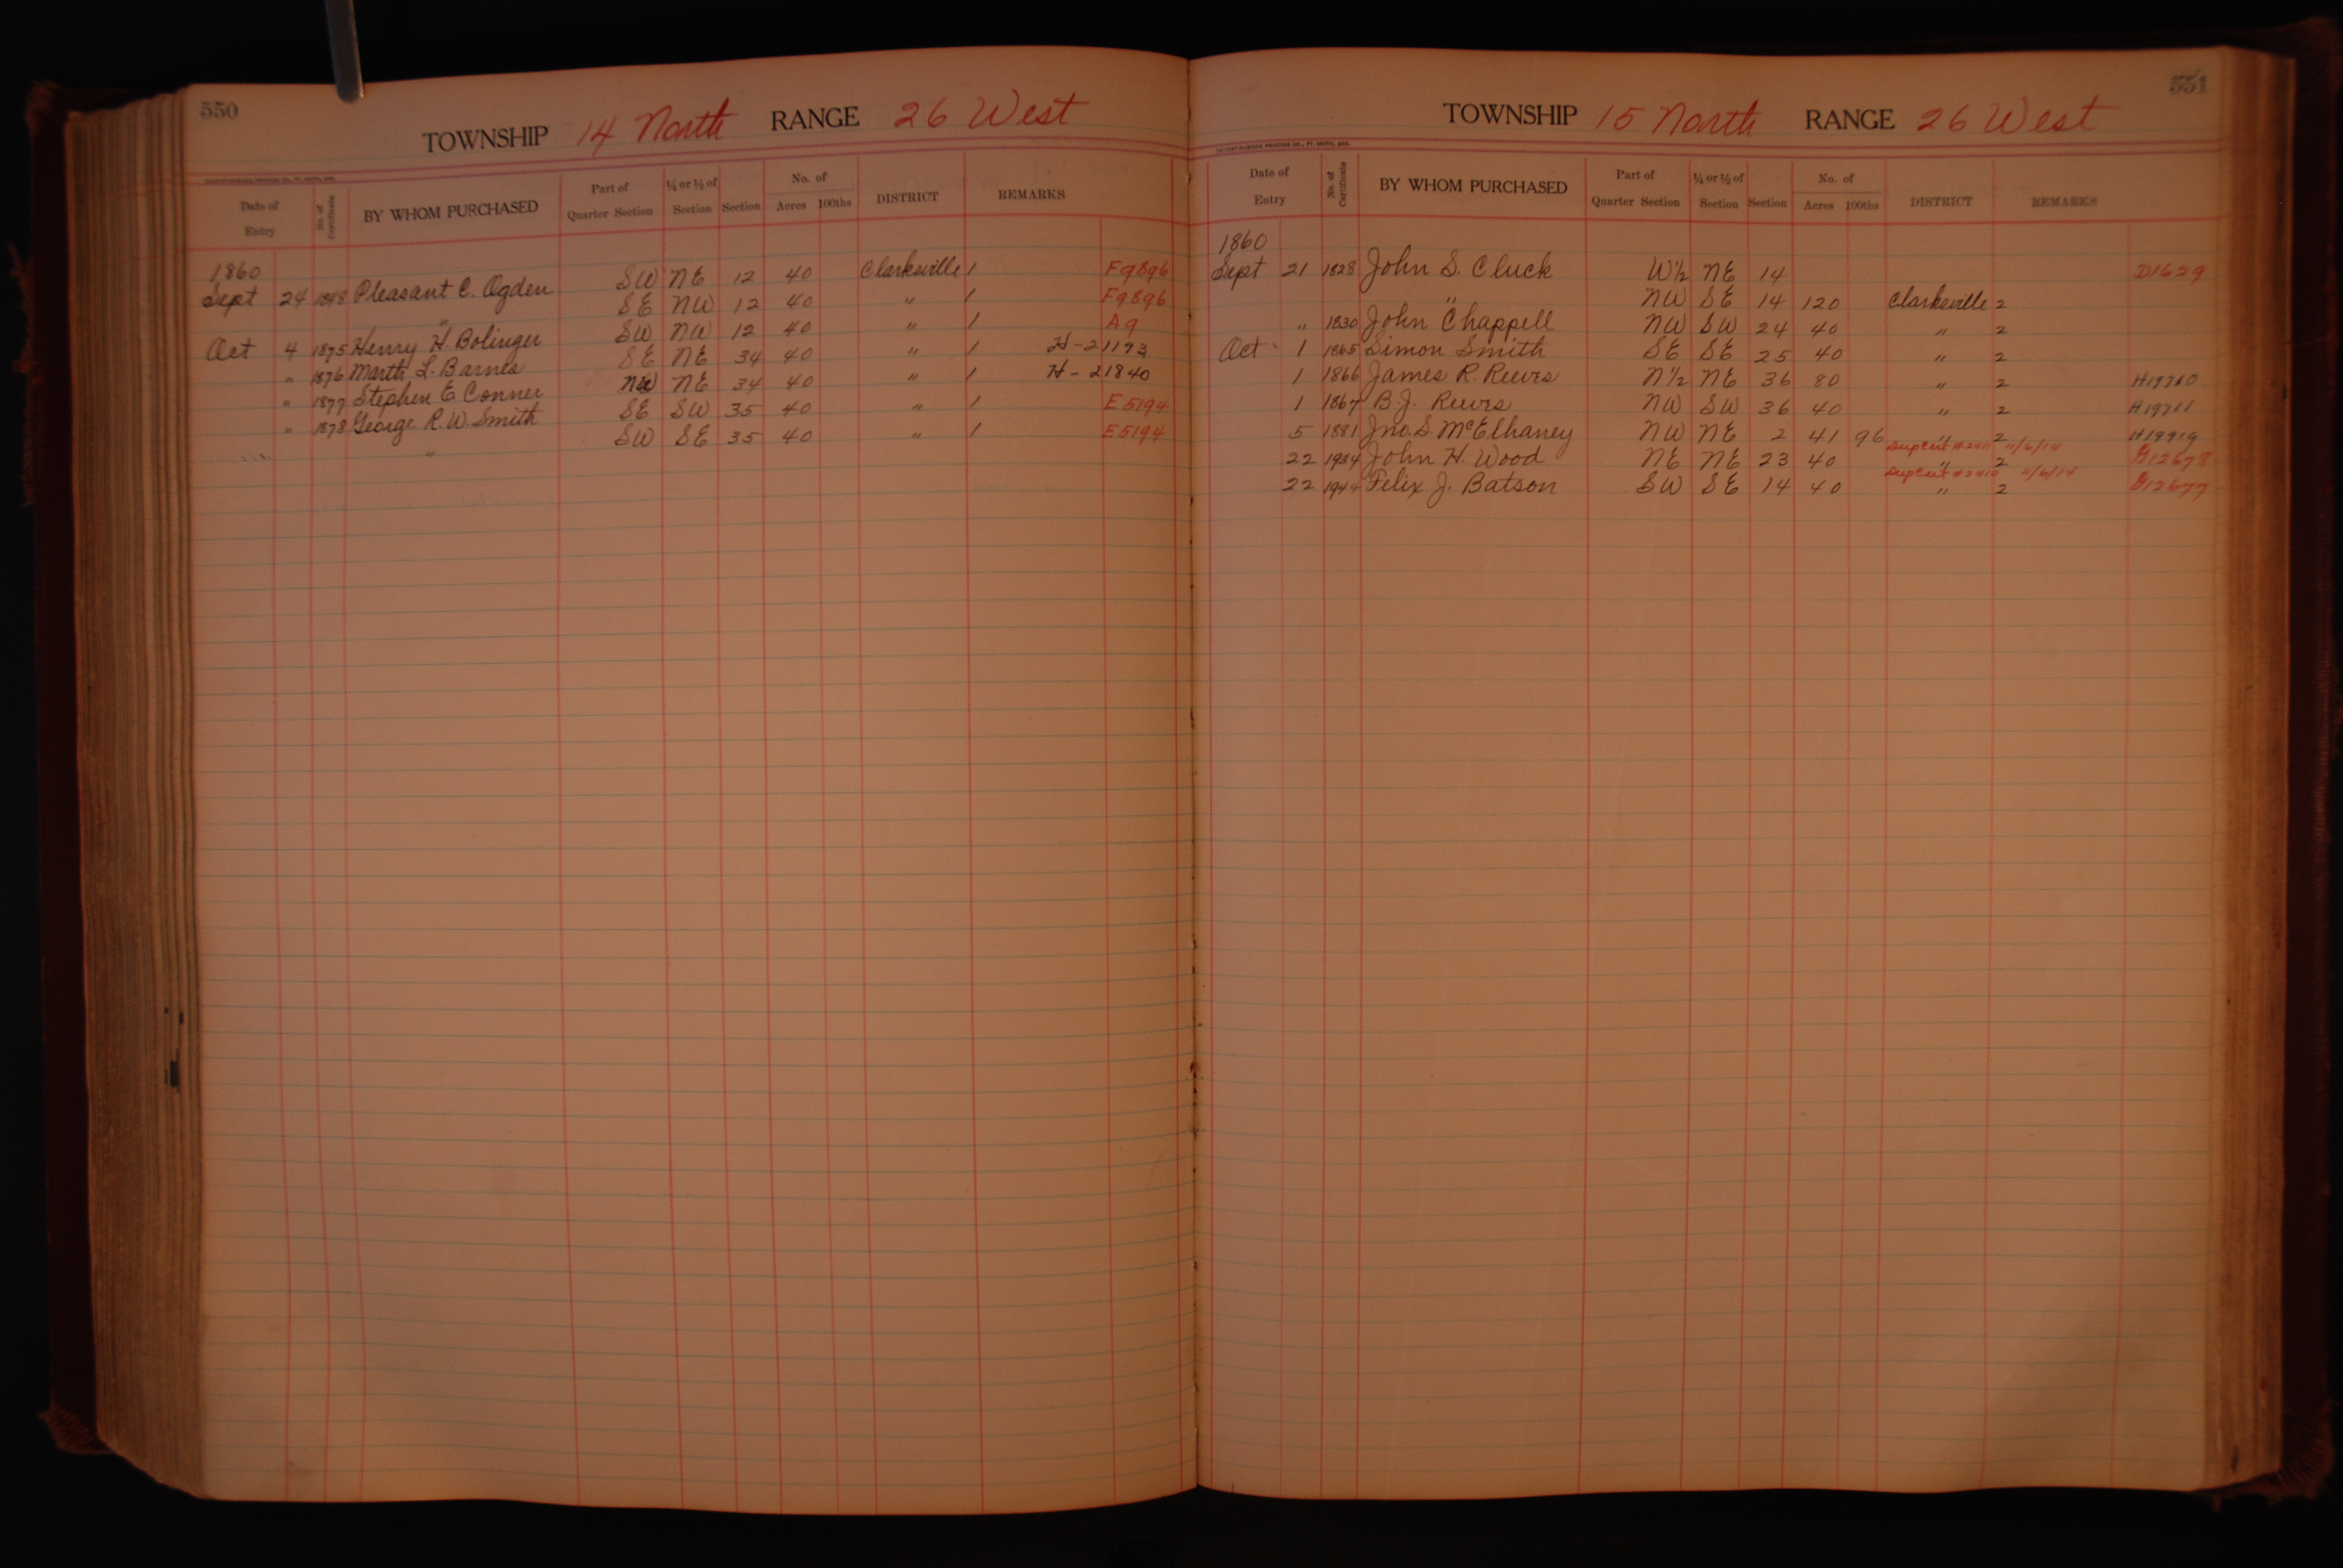 550
TOWNSHIP 14 North RANGE 26 West
Date of Entry No. of Certificate BY WHOM PURCHASED Part of Quarter Section ¼ or ½ of Section Section No. of Acres 100ths DISTRICT REMARKS
1860
Sept 24 1848 Pleasant C. Ogden SW NE 12 40 Clarksville 1 F9896
" SE NW 12 40 " 1 F9896
Oct 4 1875 Henry H. Bolinger SW NW 12 40 " 1 A9
" 1876 Marth L. Barnes SE NE 34 40 " 1 H-21193
" 1877 Stephen E Conner NW NE 34 40 " 1 H-21840
" 1878 George R. W. Smith SE SW 35 40 " 1 E5194
" SW SE 35 40 " 1 E5194
551
TOWNSHIP 15 North RANGE 26 West
Date of Entry No. of Certificate BY WHOM PURCHASED Part of Quarter Section ¼ or ½ of Section Section No. of Acres 100ths DISTRICT REMARKS
1860
Sept 21 1828 John S. Cluck W½ NE 14 D1629
" NW SE 14 120 Clarksville 2
" 1830 John Chappell NW SW 24 40 " 2
Oct 1 1865 Simon Smith SE SE 25 40 " 2
1 1866 James R. Reeves N½ NE 36 80 " 2 H19710
1 1867 B. J. Reeves NW SW 36 40 " 2 H19711
5 1881 Jno. S. McElhaney NW NE 2 41 96 " 2 H19919
Dup Cert # 2411 11/6/14
22 1934 John H. Wood NE NE 23 40 " 2 G12678
Dup Cert # 2410 11/6/14
22 1944 Felix J. Batson SW SE 14 40 " 2 G12677